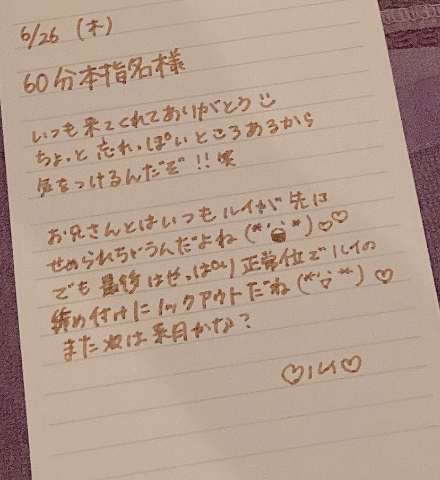 6/26 (木)
60分本指名様
いつも来てくれてありがとう
ちょっと忘れっぽいところあるから
気をつけるんだぞ!!笑
お兄さんとはいつもルイが先に
せめられちゃうんだよね(*´º`*)♡♡
でも最後はやっぱり正常位でルイの
締め付けにノックアウトだね(*´ `*)♡
また次は来月かな?
♡ルイ♡